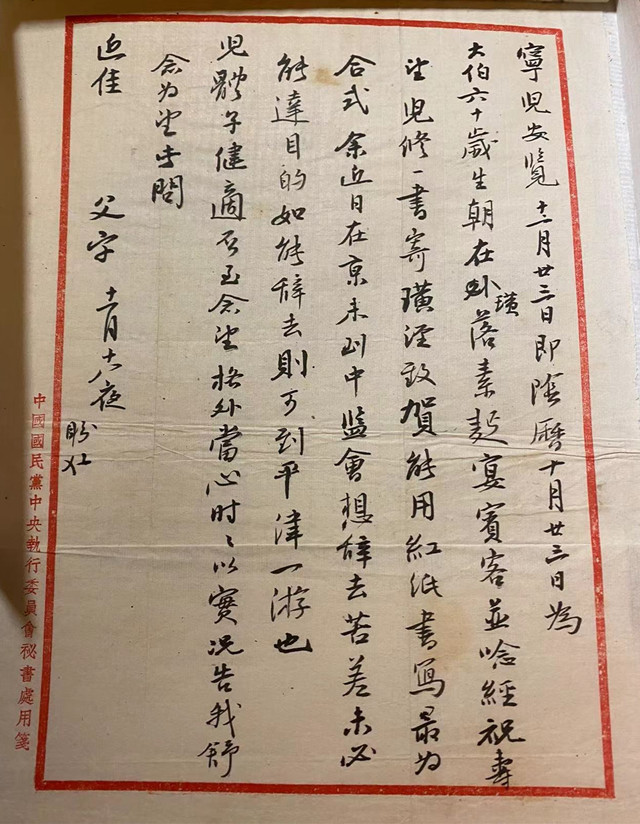 寧兒安覽十二月廿三日即陰曆十月廿三日為
大伯六十歲生朝在外璜落素麵宴賓客並唸經祝壽
望兒修一書寄璜涇致賀能用紅紙書寫最為
合式余近日在京未到中監會想辭去苦差未必
能達目的如能辭去則可到平津一游也
兒體子健適否至念望格外當心時々以實況告我舒
念為望專問
近佳
父字 十一月十六夜
中國國民黨中央執行委員會秘書處用箋